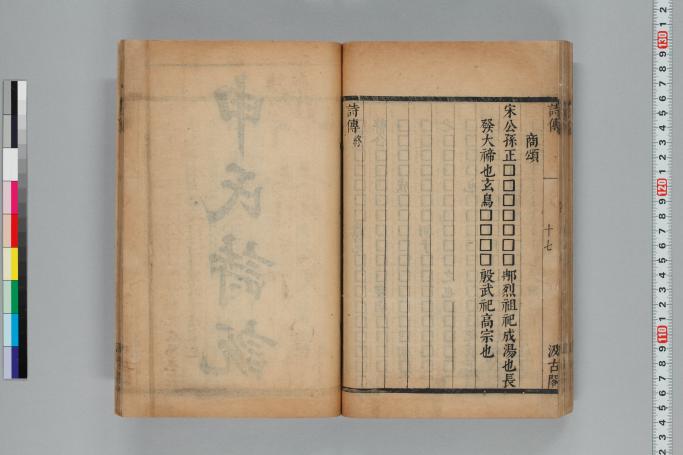 詩傳
十七
汲古閣
商頌
宋公孫正□□□□□□□那烈祖祀成湯也長
發大禘也玄鳥□□□□殷武祀高宗也
詩傳終
申氏詩說